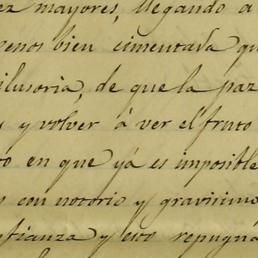 ez mayores, llegando a
menos bien cimentada qu
ilusoria, de que la paz
y volver á ver el fruto
en que yá es imposible
con notorio y gravisimo
nfianza y esto repugna